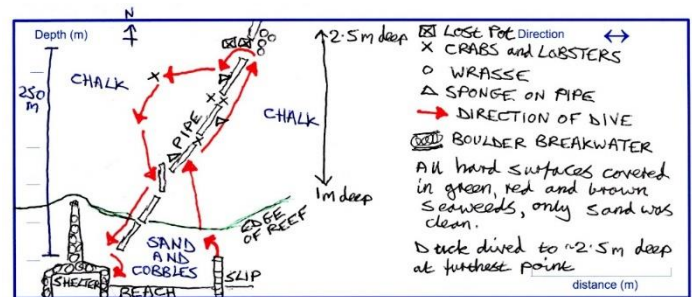 N
Depth (m)
250
M
CHALK
PIPE
CHALK
EDGE
OF REEF
SAND
AND
COBBLES
SHELTER
BEACH
SLIP
2.5m deep
1m deep
LOST POT
Direction
CRABS and LOBSTERS
WRASSE
SPONGE ON PIPE
DIRECTION OF DIVE
BOULDER BREAKWATER
All hard surfaces covered
in green, red and brown
seaweeds, only sand was
clean.
Duck dived to ~2.5m deep
at furthest point
distance (m)